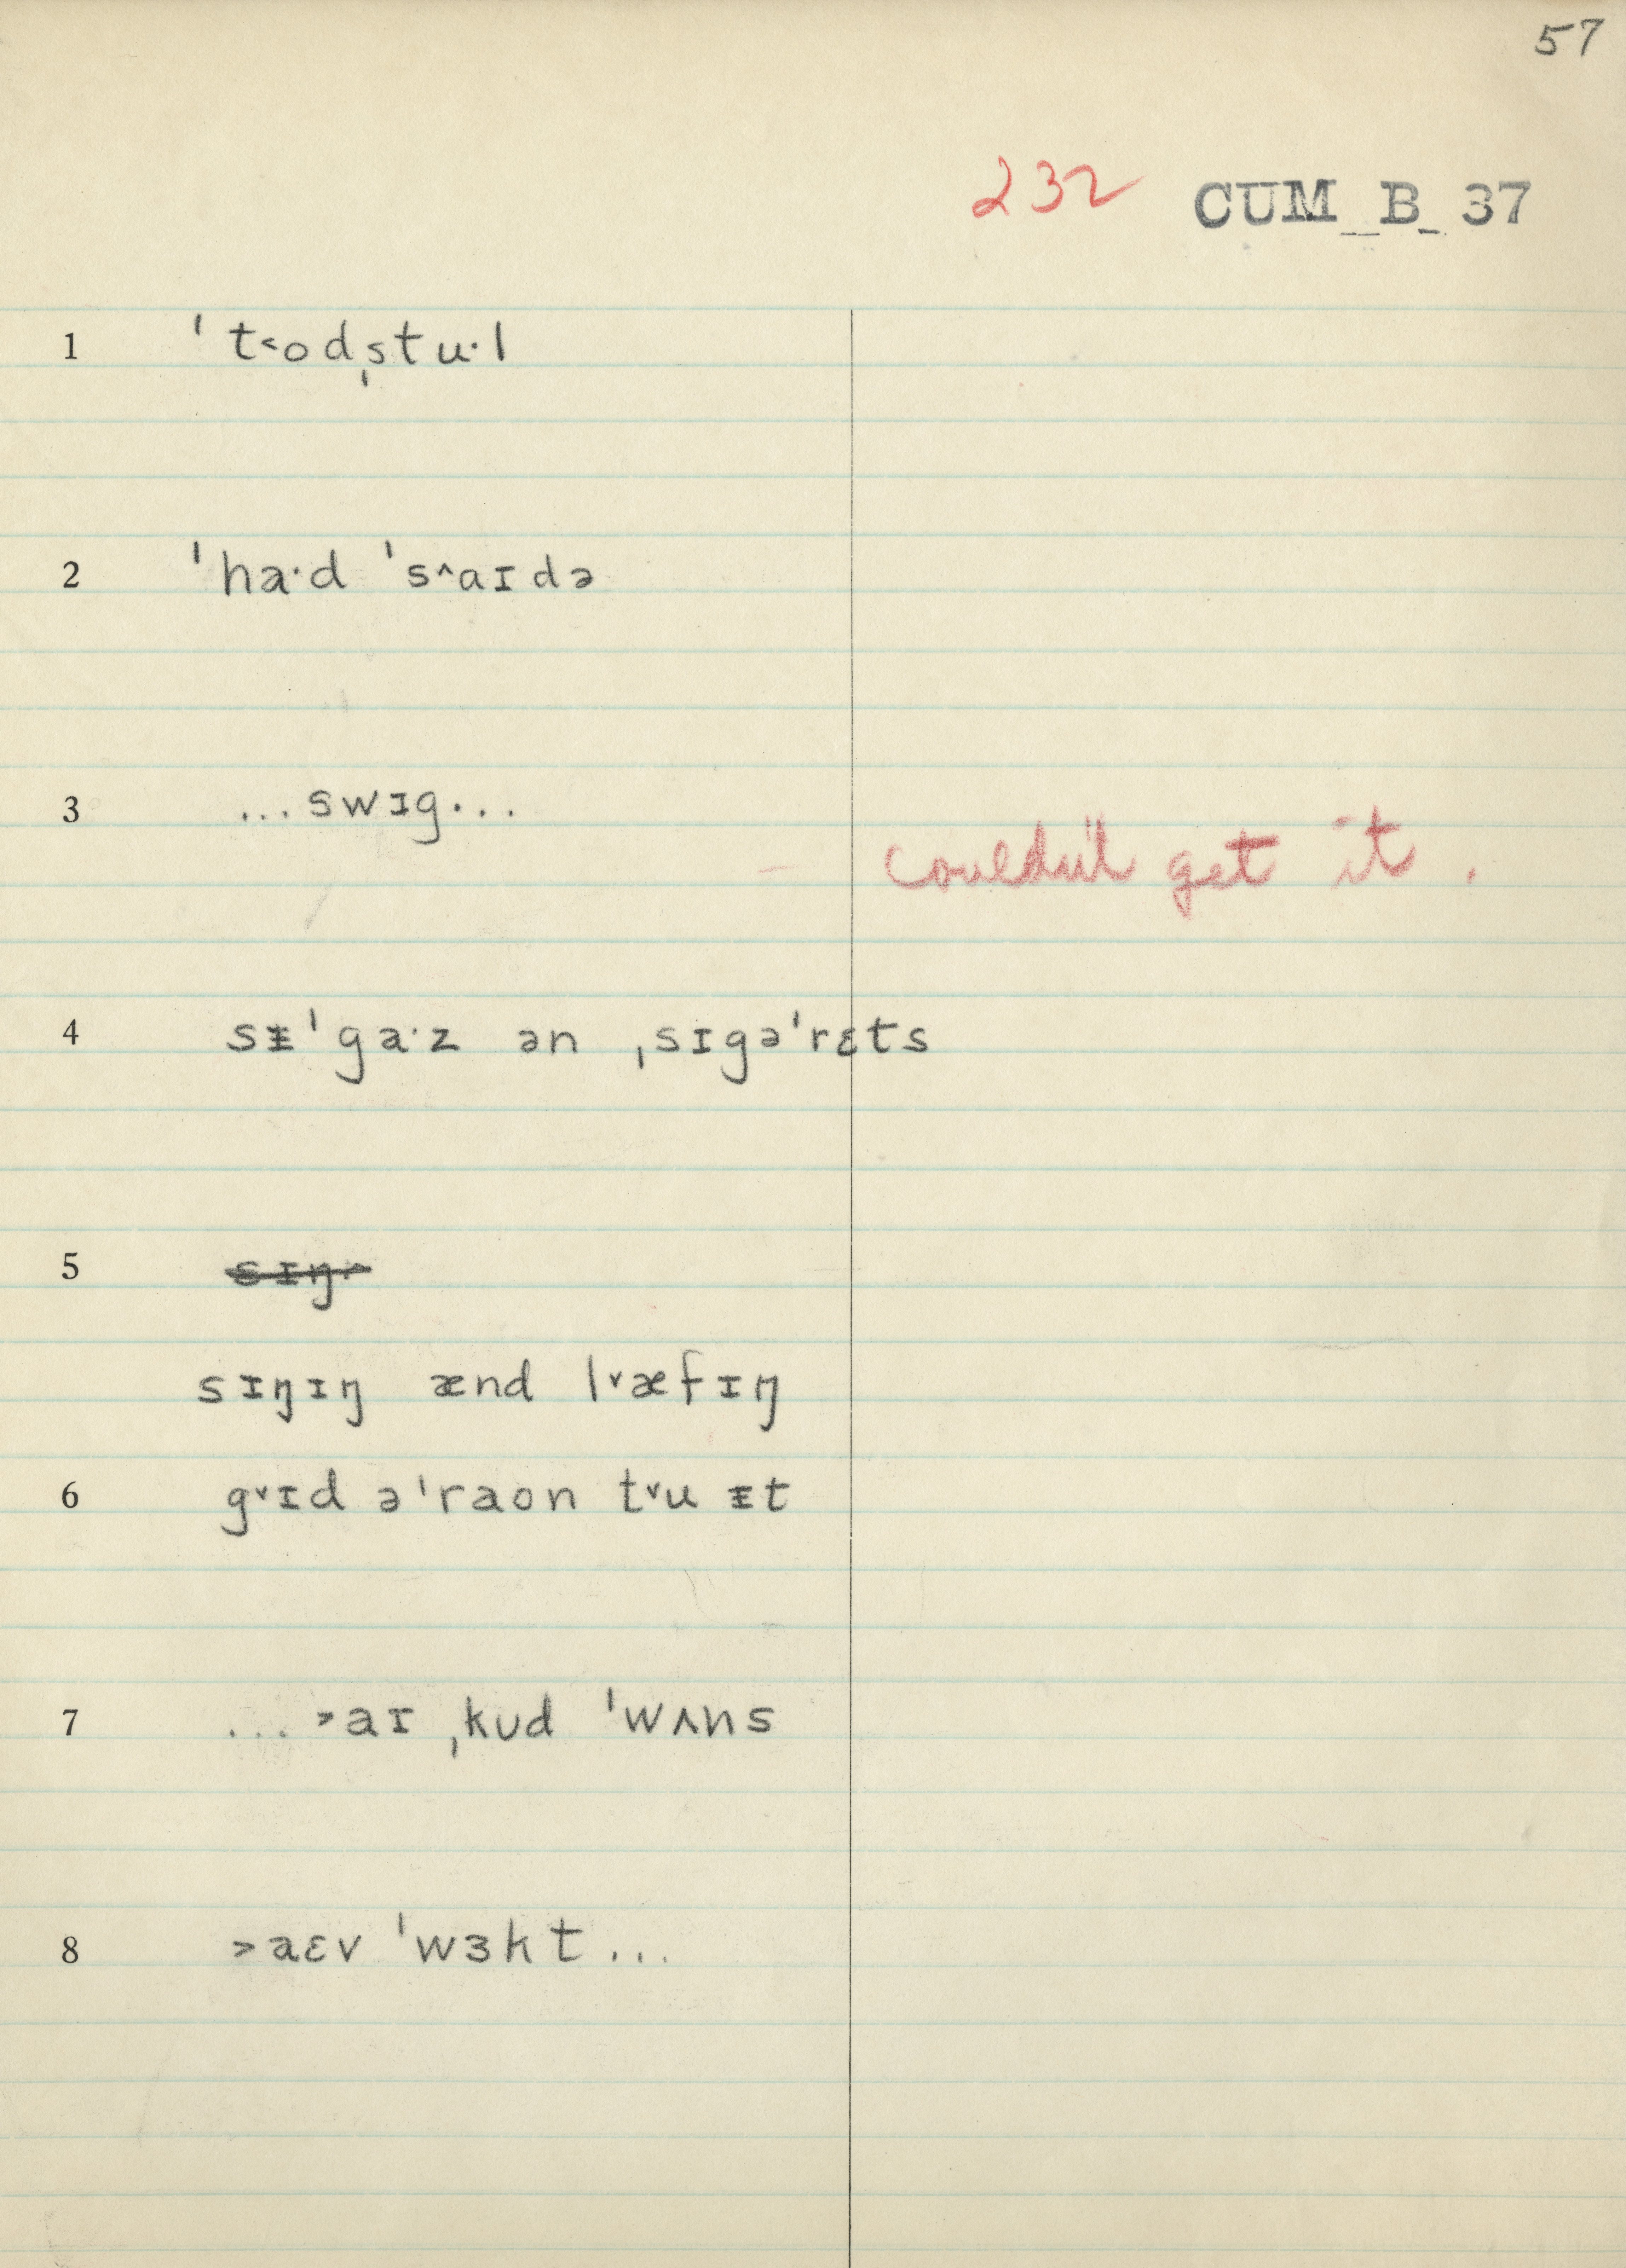 57
232 CUM B 37
1 ˈt˂odˌstu·l
2 ˈha·d ˈs˄aɪdə
3 ...swɪg...
– couldn't get it.
4 sᵻˈga·z ən ˌsɪgəˈrɛts
5 sɪŋ
sɪŋɪŋ ænd l˅æfɪŋ
6 g˅ɪd əˈraon t˅u ᵻt
7 ...˃aɪ ˌkʊd ˈwʌns
8 ˃aɛv ˈwɜkt...